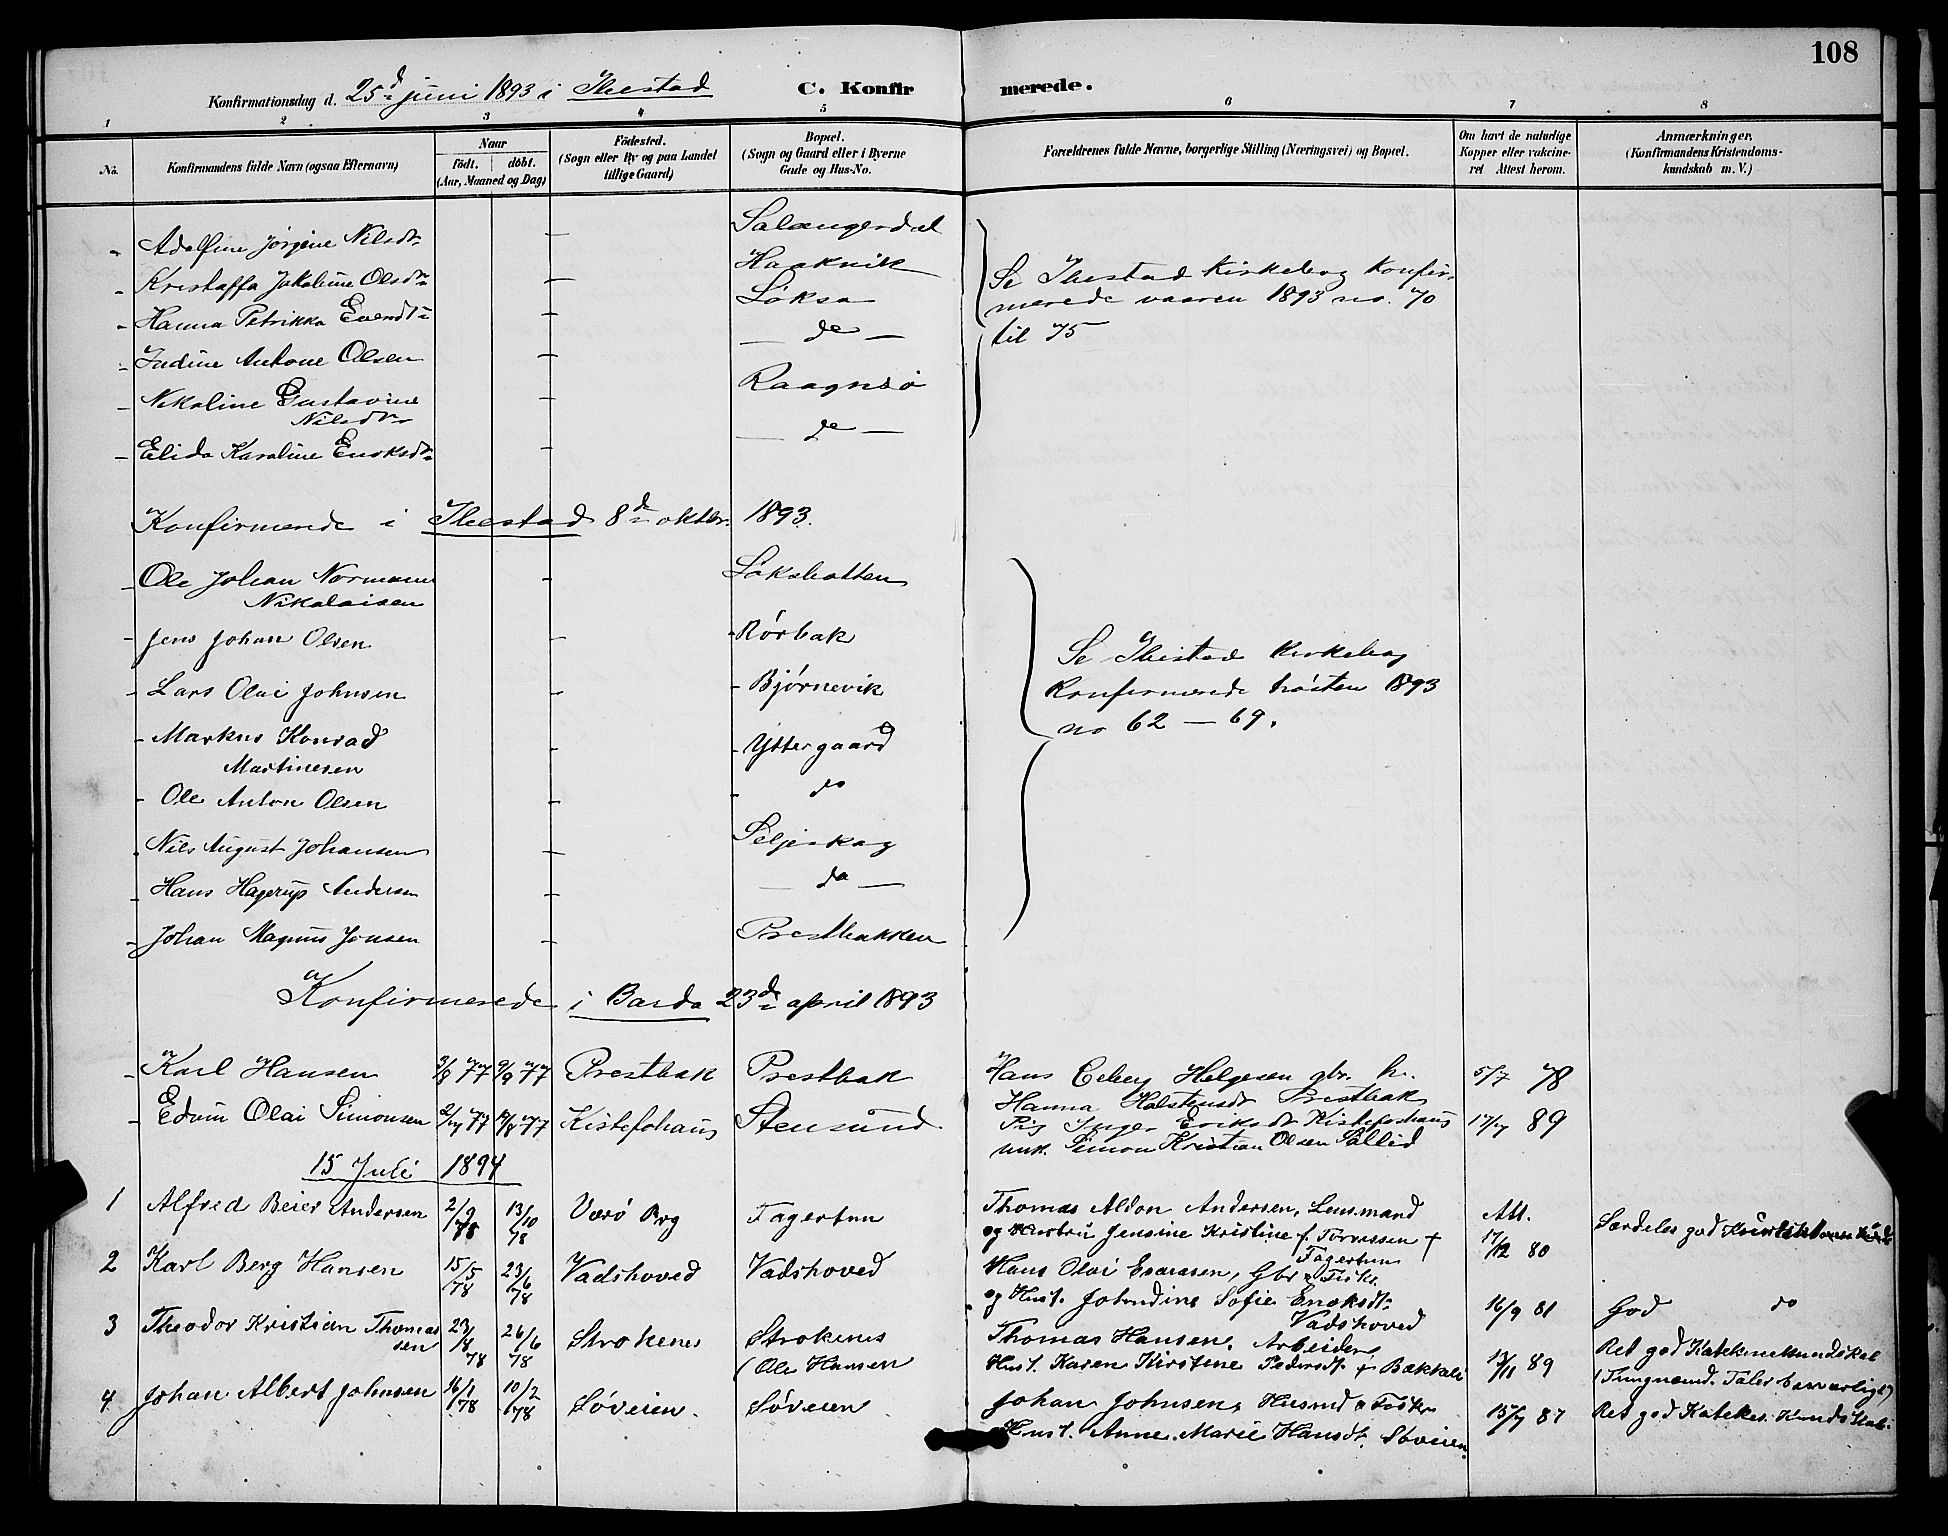 108
Konfirmationsdag d. 25d juni 1893 i Ibestad C. Konfirmerede.
1 2 3 4 5 6 7 8
No. Konfirmandens fulde Navn (ogsaa Efternavn) Naar født. døbt. (Aar, Maaned og Dag) Fødested. (Sogn eller By og paa Landet tillige Gaard) Bopæl. (Sogn og Gaard eller i Byerne Gade og Hus-No. Forældrenes fulde Navne, borgerlige Stilling (Næringsvei) og Bopæl. Om havt de naturlige Kopper eller vakcineret Attest herom. Anmærkninger. (Konfirmandens Kristendomskundskab m. V.)
Adolfine Jørgine Nilsdtr Salangerdal
Kristaffa Jakobine Olsdtr Haakvik
Hanna Petrikka Evendtr Løksa
Indine Antone Olsen — do —
Nikoline Gustavine Nilsdtr Raagnsø
Elida Karoline Enoksdtr — do —
Se Ibestad Kirkebog Konfir-
merede vaaren 1893 no. 70
til 75
Konfirmerede i Ibestad 8de oktbr. 1893.
Ole Johan Normann Nikolaisen Løksbotten
Jens Johan Olsen Rørbak
Lars Olai Johnsen Bjørnevik
Markus Konrad Martinesen Yttergaard
Ole Anton Olsen do
Nils August Johansen Seljeskog
Hans Hagerup Andersen — do —
Johan Magnus Jonsen Prestbakken
Se Ibestad Kirkebog
Konfirmerede høsten 1893
no 62 — 69.
Konfirmerede i Bardo 23de april 1893
Karl Hansen 3/8 77 9/9 77 Prestbak Prestbak Hans Helgesen gbr. h. 5/7 78
Hanna Holstensdt Prestbak
Edvin Olai Simonsen 2/7 77 19/8 77 Kistefohaus Stensund Pig Inger Eriksdt Kistefoshaus 17/7 89
unk. Simon Kristian Olsen Sallid
15 Juli 1894
1 Alfred Beier Andersen 2/9 78 13/10 78 Værø Prg Fagertun Thomas Aldon Andersen, Lensmand Att. 17/12 80 Særdeles god Kristendomskunds
og Hustru Jensine Kristine f. Torvessen + Fagertun
2 Karl Berg Hansen 15/5 78 23/6 78 Vadshoved Vadshoved Hans Olai Esaiasen, Gbr & Fisk. 16/9 81 God do
og Hust. Johndine Sofie Enoksdtr Vadshoved
3 Theodor Kristian Thomassen 23/4 78 26/6 78 Strokenes Strokenes (Ole Hansen Thomas Hansen, Arbeider 13/11 89 Ret god Katekismekundskab
Hust. Karen Kirstine Pedersdt. + Bakkeli (Tungnemd. Taler besværligt)
4 Johan Albert Johnsen 16/1 78 10/2 78 Søveien Søveien Johan Johnsen, Husmd & Fisker 15/7 87 Ret god Katekes. Kundskab.
Hust. Anne Marie Hansdt. Søveien